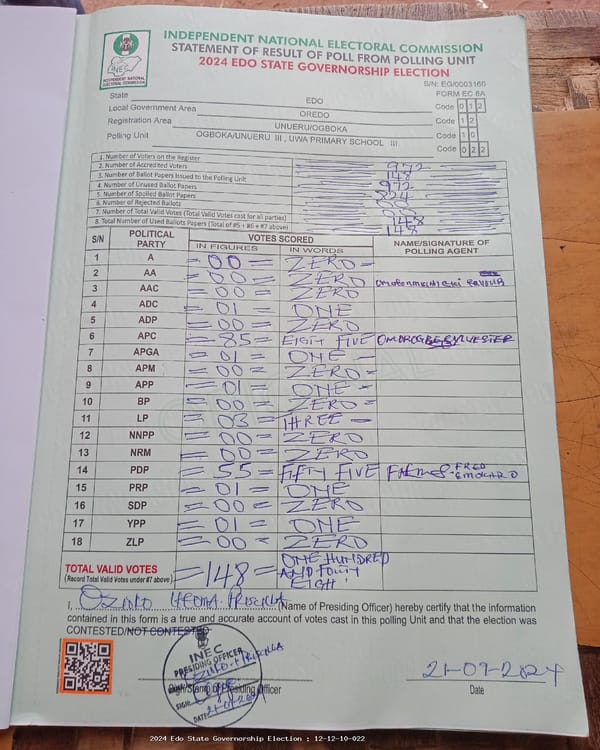 INDEPENDENT NATIONAL ELECTORAL COMMISSION
STATEMENT OF RESULT OF POLL FROM POLLING UNIT
2024 EDO STATE GOVERNORSHIP ELECTION
INEC
INDEPENDENT NATIONAL ELECTORAL COMMISSION
S/N: EG/0003160
FORM EC 8A
State EDO Code 0 1 2
Local Government Area OREDO Code 1 2
Registration Area UNUERU/OGBOKA Code 1 0
Polling Unit OGBOKA/UNUERU III , UWA PRIMARY SCHOOL III Code 0 2 2
1. Number of Voters on the Register 972
2. Number of Accredited Voters 148
3. Number of Ballot Papers Issued to the Polling Unit 972
4. Number of Unused Ballot Papers 824
5. Number of Spoiled Ballot Papers
6. Number of Rejected Ballots
7. Number of Total Valid Votes (Total Valid Votes cast for all parties) 148
8. Total Number of Used Ballots Papers (Total of #5 + #6 + #7 above) 148
S/N POLITICAL PARTY VOTES SCORED NAME/SIGNATURE OF POLLING AGENT
IN FIGURES IN WORDS
1 A = 00 = ZERO =
2 AA = 00 = ZERO
3 AAC = 00 = ZERO
4 ADC = 01 = ONE
5 ADP = 00 = ZERO
6 APC = 85 = EIGHT FIVE
7 APGA = 01 = ONE =
8 APM = 00 = ZERO =
9 APP = 01 = ONE =
10 BP = 00 = ZERO =
11 LP = 03 = THREE =
12 NNPP = 00 = ZERO
13 NRM = 00 = ZERO
14 PDP = 55 = FIFTY FIVE FRED
15 PRP = 01 = ONE
16 SDP = 00 = ZERO
17 YPP = 01 = ONE
18 ZLP = 00 = ZERO
TOTAL VALID VOTES = 148 = ONE HUNDRED AND FOUTY EIGH
(Record Total Valid Votes under #7 above)
I, PRISCILLA (Name of Presiding Officer) hereby certify that the information
contained in this form is a true and accurate account of votes cast in this polling Unit and that the election was
CONTESTED/NOT CONTESTED
INEC
PRESIDING OFFICER
PRISCILLA
SIGN:
DATE 21-09-2024
Sign/Stamp of Presiding Officer
21-09-2024
Date
2024 Edo State Governorship Election : 12-12-10-022